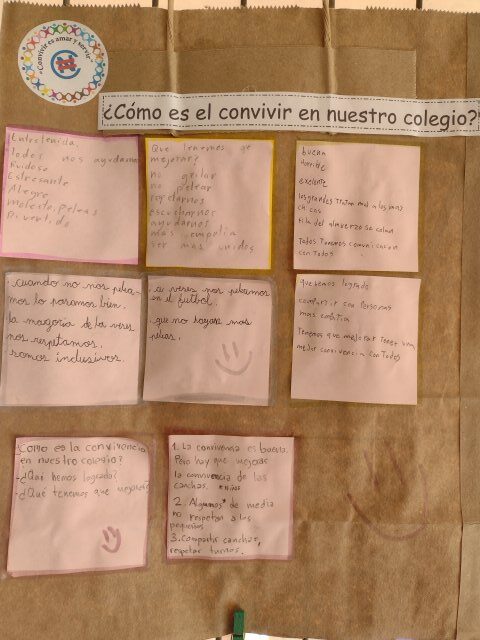 "Convivir es amar y servir"
¿Cómo es el convivir en nuestro colegio?
Entretenida
Todos nos ayudamos
Ruidosa
Estresante
Alegre
molesta, Peleas
Divertido
Que tenemos qe
mejorar?
no gritar
no pelear
respetarnos
escucharnos
ayudarnos
mas empatia
ser mas unidos
buena
horrible
exelente
los grandes tratan mal a los mas
chicos
fila del almuerzo se colan
Todos Tenemos comunicacion
con Todos
. cuando no nos pelea-
mos lo pasamos bien.
. la magoría de la veces
nos respetamos.
. somos inclusivos.
. a veses nos peleamos
en el futbol.
. que no hayan mas
peleas.
que hemos logrado
compartir con Personas
mas empatica
Tenemos que mejorar Tener una
mejor convivencia con Todos
Como es la convivencia
en nuestro colegio?
-¿Qué hemos logrado?
-¿Qué tenemos que mejorar?
1. La convivencia es buena.
Pero hay que mejorar
la convivencia de las
canchas.
2. Algunos de media
no respetan a los
pequeños
3. Compartir canchas,
respetar turnos.